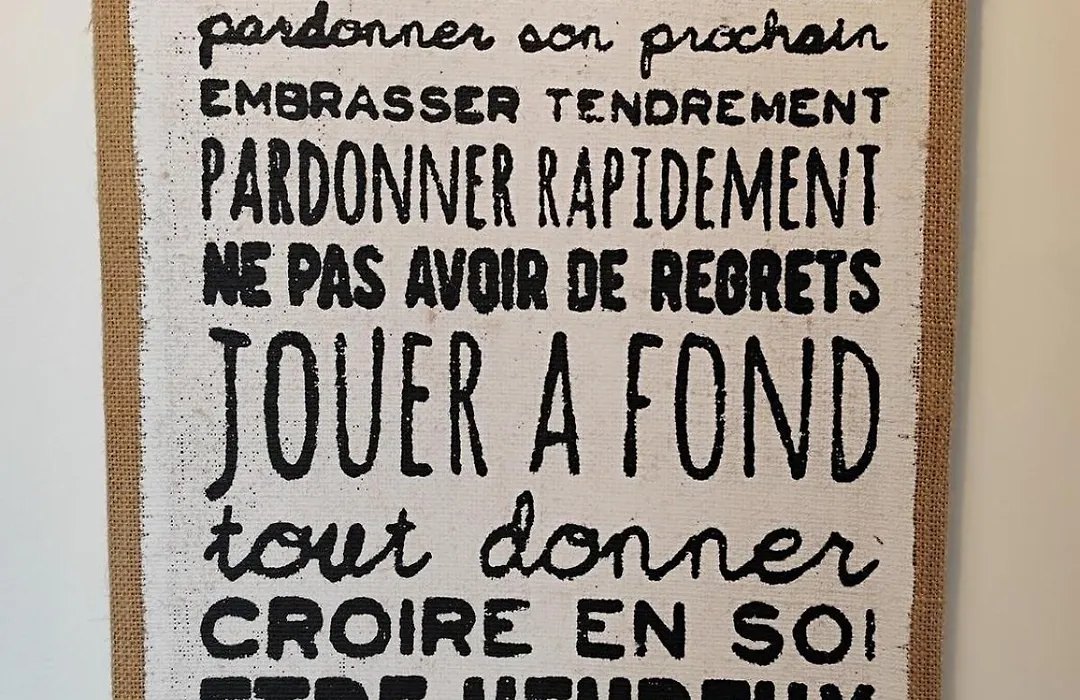 pardonner son prochain
EMBRASSER TENDREMENT
PARDONNER RAPIDEMENT
NE PAS AVOIR DE REGRETS
JOUER A FOND
tout donner
CROIRE EN SOI
ETRE HEUREUX